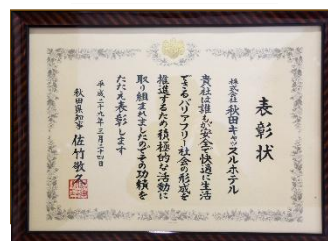 表彰状
株式会社 秋田キャッスルホテル
貴社は誰もが安全で快適に生活
できるバリアフリー社会の形成を
推進するため積極的な活動に
取り組まれましたのでその功績を
たたえ表彰します
平成二十九年三月二十四日
秋田県知事 佐竹敬久